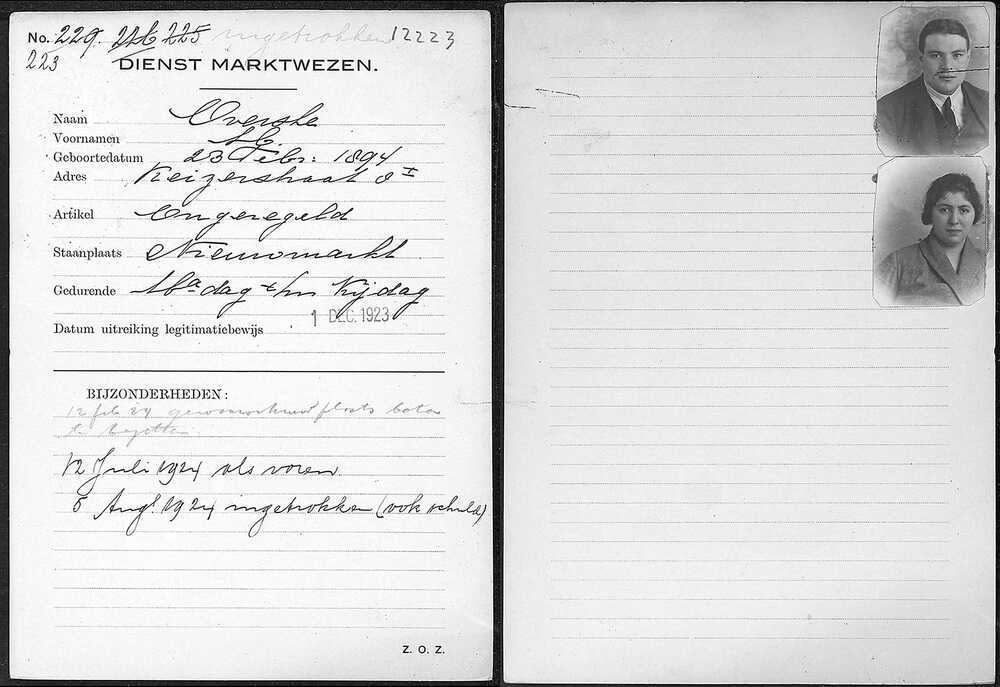 No. 229. 226 225 ingetrokken 12223
223
DIENST MARKTWEZEN.
Naam Overste
Voornamen M.
Geboortedatum 23 Febr: 1894
Adres Keizerstraat 8 I
Artikel Ongeregeld
Staanplaats Nieuwmarkt
Gedurende Maandag t/m Vrijdag
1 DEC. 1923
Datum uitreiking legitimatiebewijs
BIJZONDERHEDEN:
12 feb 24 gewaarschuwd plaats beter
te bezetten
12 Juli 1924 als voren
5 Augt. 1924 ingetrokken (ook schuld)
Z. O. Z.